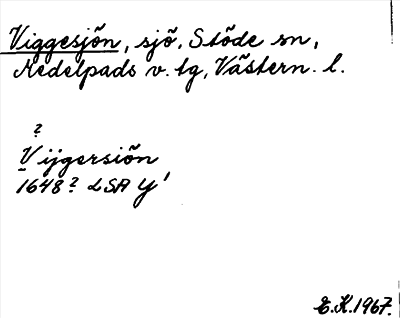 Viggesjön, sjö, Stöde sn,
Medelpads v. tg, Västern. l.
?
Vijgersiön
1648? LSA Y'
E.K. 1967.